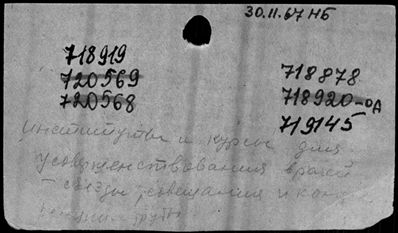 30.11.67 НБ
718919
720569
720568
718878
718920-оД
719145
Институты и курсы для
усовершенствования врачей
Съезды, совещания и